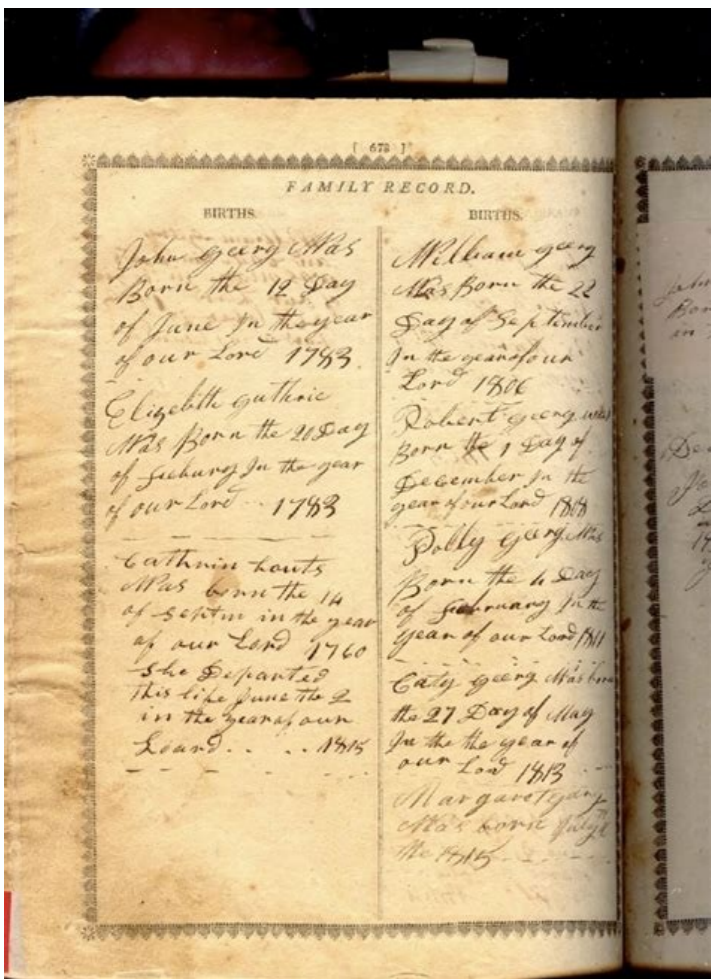 [ 678 ]
FAMILY RECORD.
BIRTHS.
John georg Was
Born the 12 Day
of June In the year
of our Lord 1783
Elizebith guthrie
Was Born the 20 Day
of In the year
of our Lord 1783
Cathrin houts
Was born the 14
of Septm in the year
of our Lord 1760
She Departed
this life June the 2
in the year of our
Loard . . . . 1815
BIRTHS.
William georg
Was Born the 22
Day of September
In the year of our
Lord 1806
Robert georg was
Born the 1 Day of
December In the
year of our Lord 1808
Polly georg Was
Born the 4 Day
of February In the
year of our Lord 1811
Caty georg Was born
the 27 Day of May
In the the year of
our Lord 1813
Margaret
Was born July
the 1815